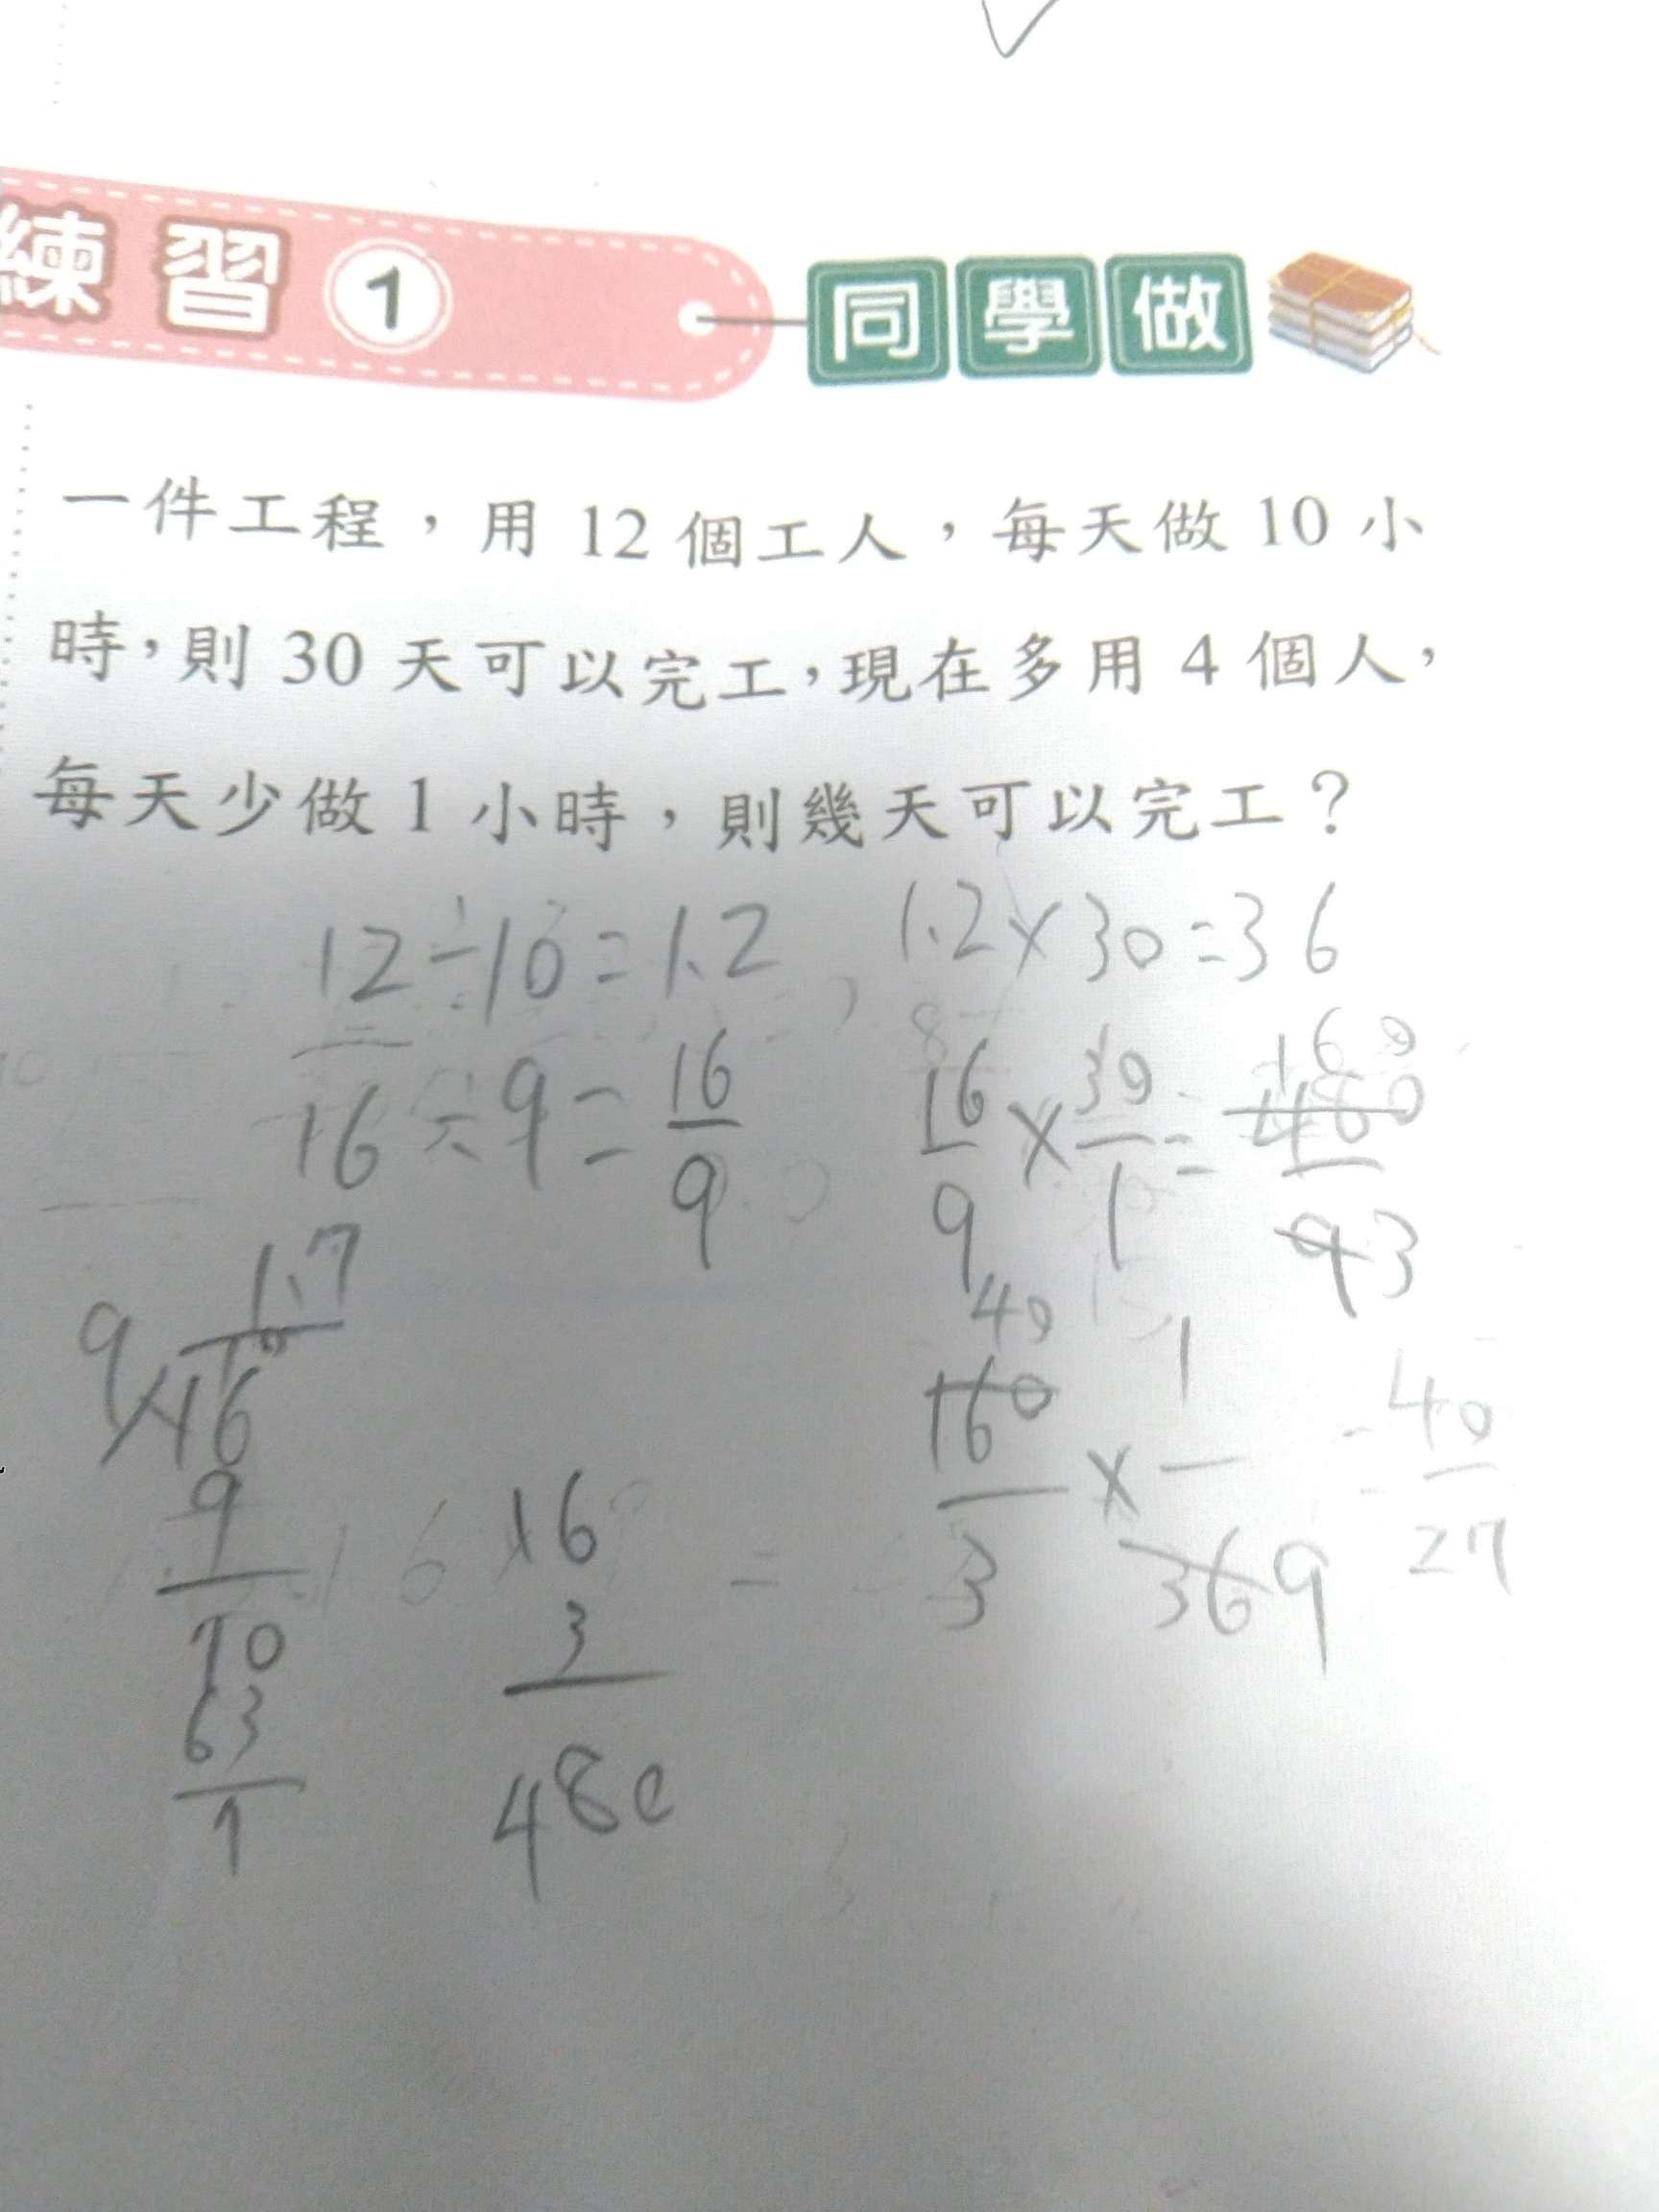 練習 1 同學做
一件工程，用 12 個工人，每天做 10 小
時，則 30 天可以完工，現在多用 4 個人，
每天少做 1 小時，則幾天可以完工？
12÷10=1.2 1.2×30=36
16÷9=16/9 16/9×30/1=
160
480
9 3
1.7
9 16
9
70
63
7
16
3
480
40
160/3 × 1/36 9 = 40/27